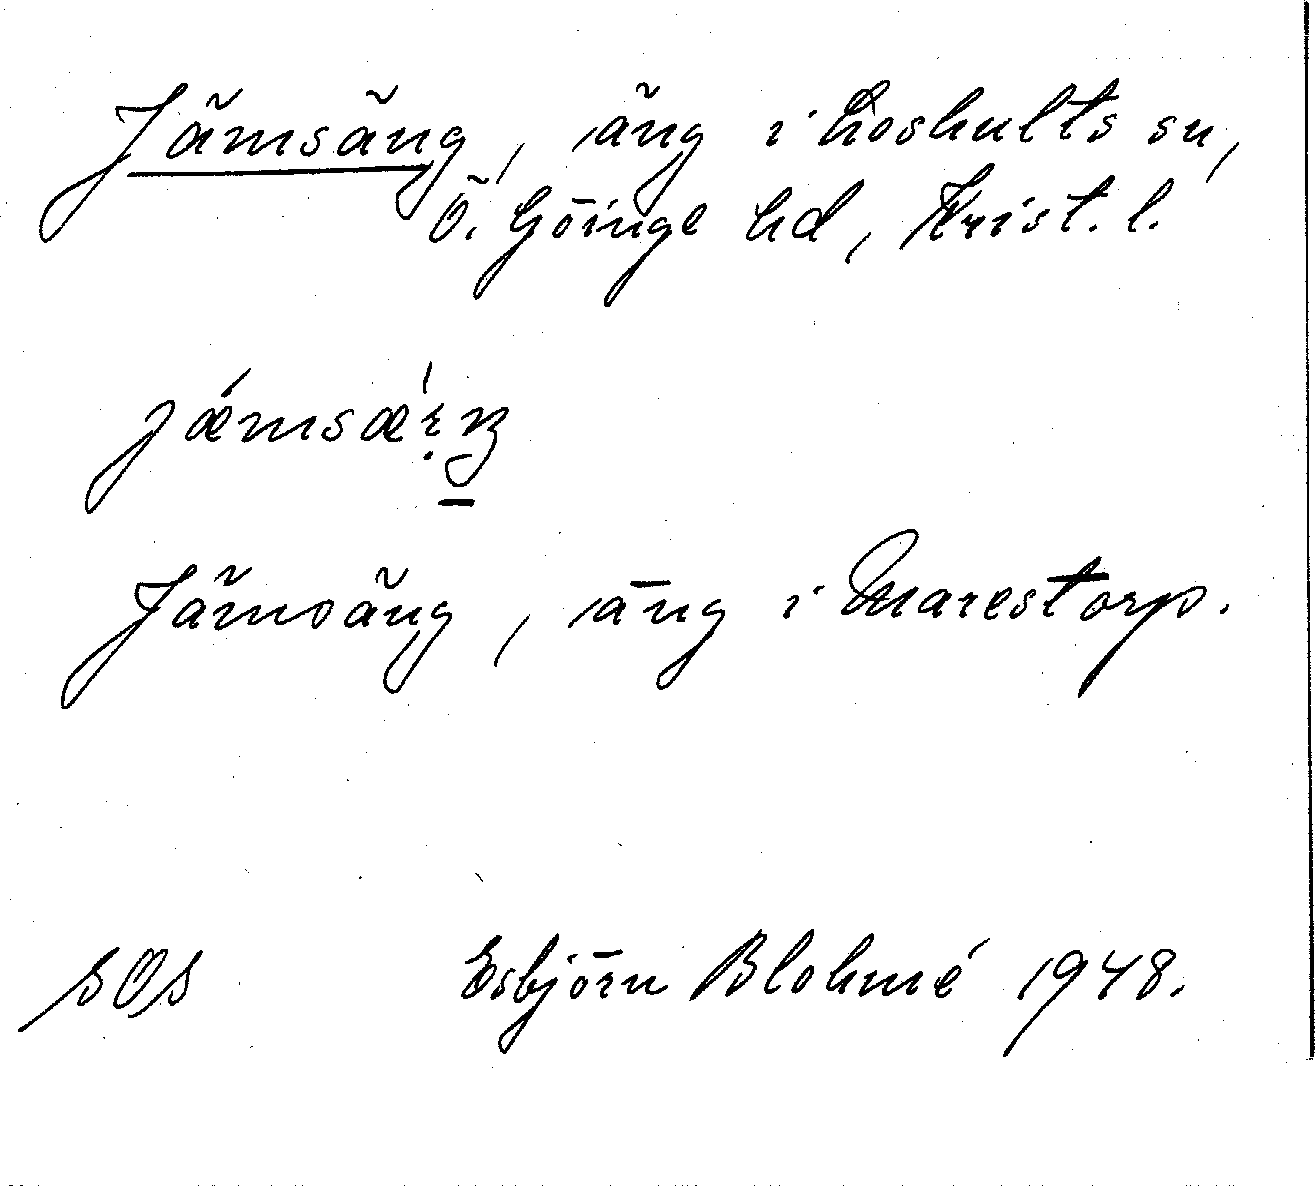 Jämsäng, äng i Loshults sn,
Ö. Göinge hd, Krist. l.
Jämsäng, äng i Marestorp.
SOS Esbjörn Blohmé 1948.